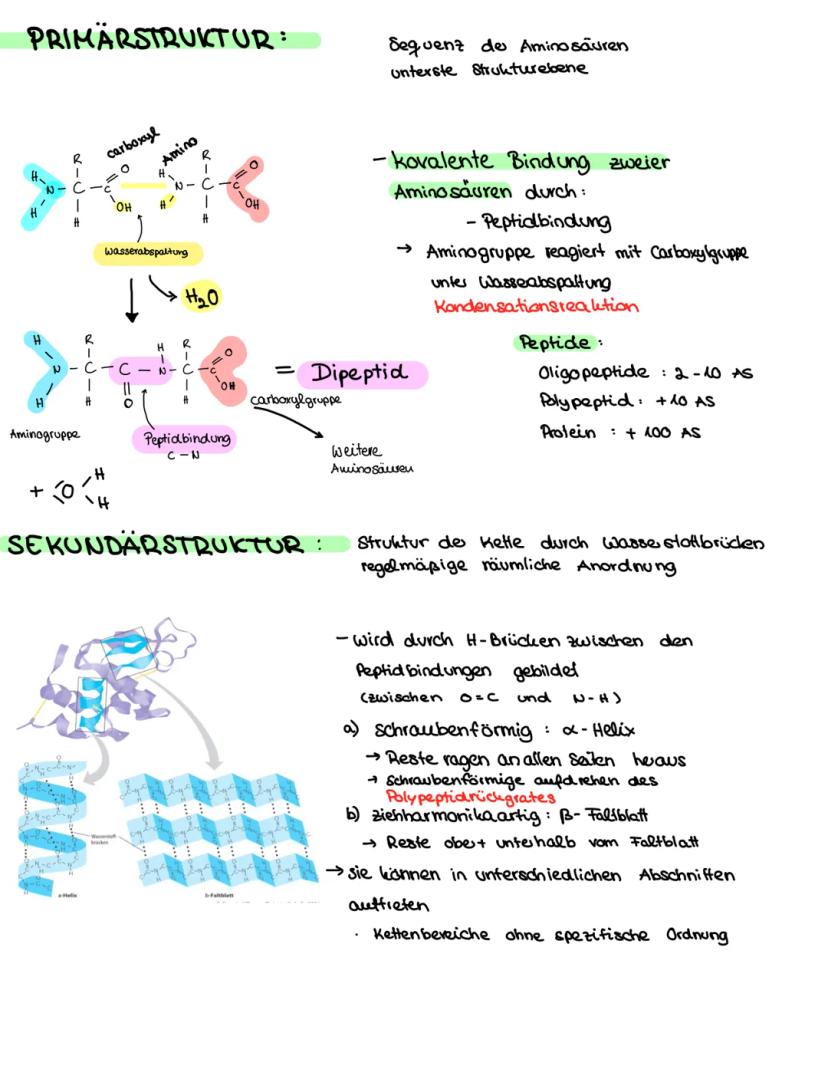 PRIMÄRSTRUKTUR:
Sequenz der Aminosäuren
unterste Strukturebene
carboxyl Amino
R O H R O
H N - C - C N - C - C
H H OH H H OH
Wasserabspaltung
H2O
- kovalente Bindung zweier
Aminosäuren durch:
- Peptidbindung
→ Aminogruppe reagiert mit Carboxylgruppe
unter Wasseabspaltung
Kondensationsreaktion
H R H R O
N - C - C - N - C - C
H H O H OH
= Dipeptid
Aminogruppe
Peptidbindung
C - N
carboxylgruppe
Weitere
Aminosäuren
+ O H H
Peptide:
Oligopeptide : 2-10 AS
Polypeptid: +10 AS
Protein : + 100 AS
SEKUNDÄRSTRUKTUR :
Struktur der Kette durch Wasserstoffbrücken
regelmäßige räumliche Anordnung
- wird durch H-Brücken zwischen den
Peptidbindungen gebildet
(zwischen O=C und N-H)
a) schraubenförmig : α-Helix
→ Reste ragen an allen Seiten heraus
→ Schraubenförmige aufdrehen des
Polypeptidrückgrates
b) ziehharmonikaartig : β-Faltblatt
→ Reste ober + unterhalb vom Faltblatt
→ sie können in unterschiedlichen Abschnitten
auftreten
· Kettenbereiche ohne spezifische Ordnung
Wasserstoff
brücken
a-Helix
b-Faltblatt